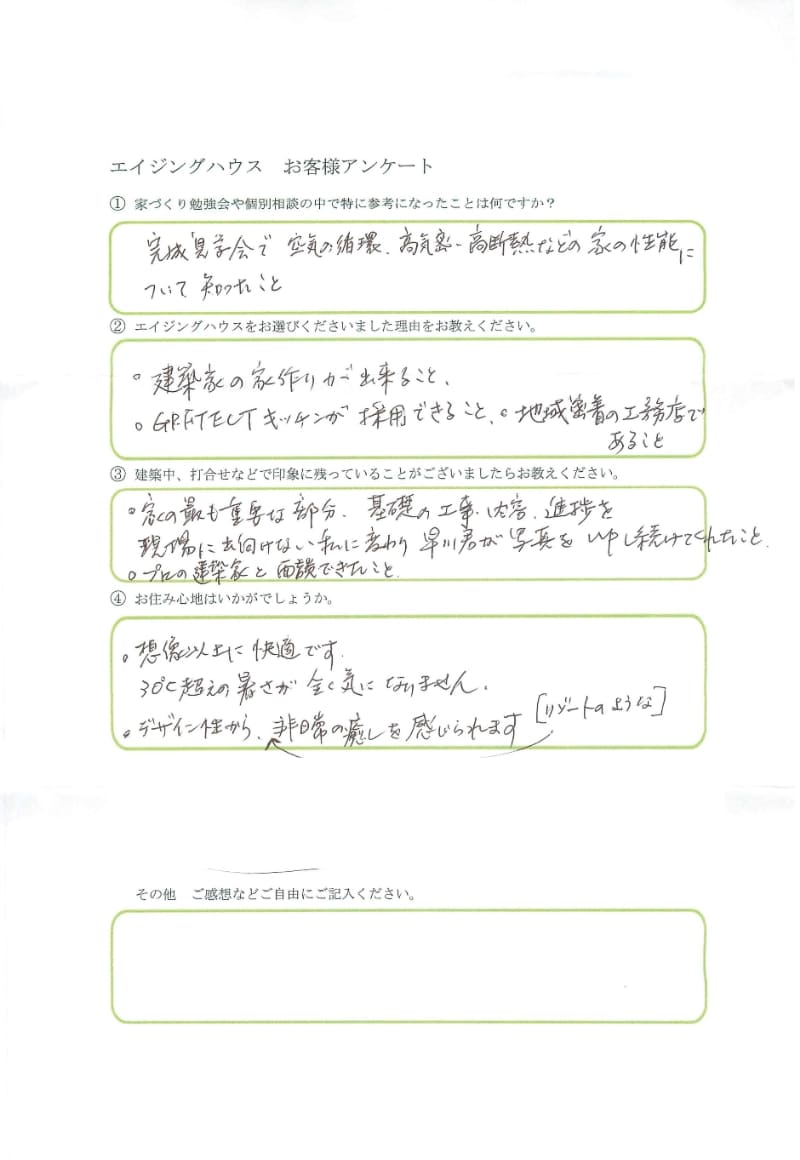 エイジングハウス　お客様アンケート
① 家づくり勉強会や個別相談の中で特に参考になったことは何ですか？
完成見学会で 空気の循環、高気密・高断熱などの家の性能に
ついて知ったこと
② エイジングハウスをお選びくださいました理由をお教えください。
。建築家の家作りが出来ること、
。GRAFTECTキッチンが採用できること、。地域密着の工務店で
あること
③ 建築中、打合せなどで印象に残っていることがございましたらお教えください。
。家の最も重要な部分、基礎の工事内容、進捗を
現場に出向けない私に変わり 早川君が写真を UPし続けてくれたこと、
。プロの建築家と面談できたこと、
④ お住み心地はいかがでしょうか。
。想像以上に快適です、
30℃超えの暑さが全く気になりません。
。デザイン性から、非日常の癒しを感じられます [リゾートのような]
その他　ご感想などご自由にご記入ください。